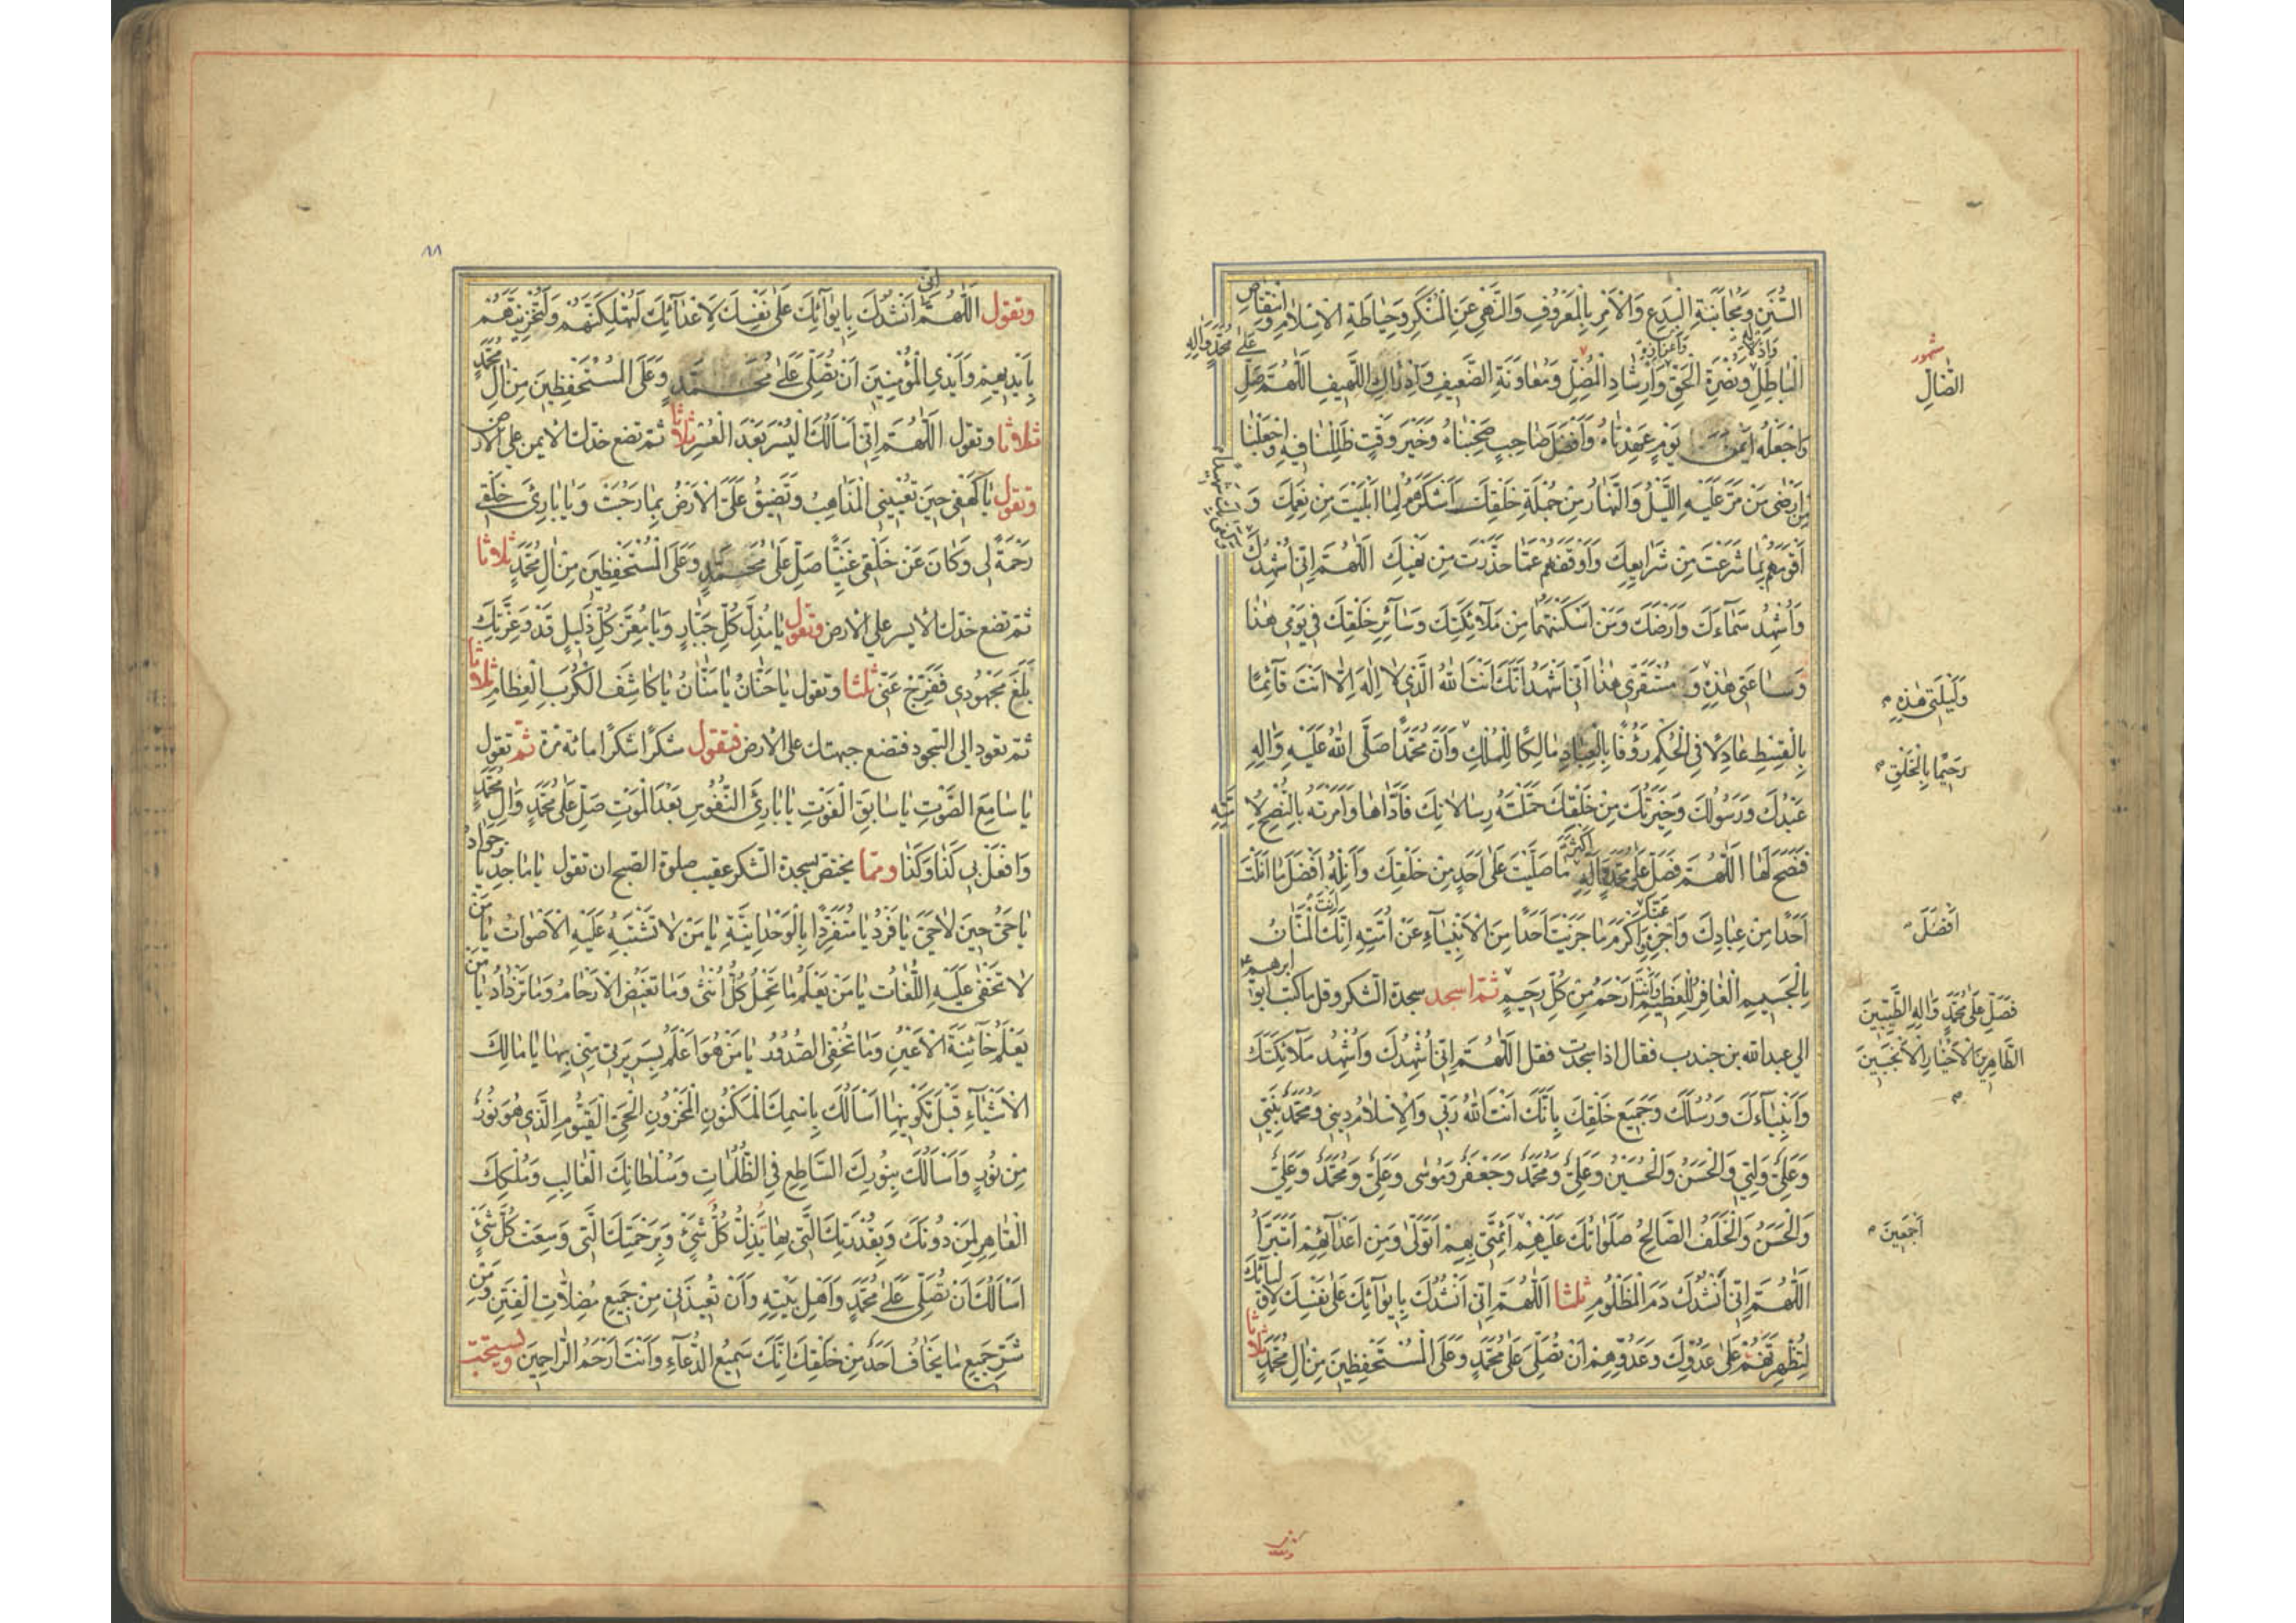 السُّنَنِ وَمُجَانَبَةِ الْبِدَعِ وَالْأَمْرِ بِالْمَعْرُوفِ وَالنَّهْيِ عَنِ الْمُنْكَرِ وَحِيَاطَةِ الْإِسْلَامِ وَانْتِقَاصِ
الْبَاطِلِ وَإِذْلَالِهِ وَنُصْرَةِ الْحَقِّ وَإِعْزَازِهِ وَإِرْشَادِ الْمُضِلِّ وَمُعَاوَنَةِ الضَّعِيفِ وَإِدْرَاكِ اللَّهِيفِ اللّٰهُمَّ صَلِّ عَلَى مُحَمَّدٍ وَآلِهِ
وَاجْعَلْهُ أَيْمَنَ يَوْمٍ عَهِدْنَاهُ وَأَفْضَلَ صَاحِبٍ صَحِبْنَاهُ وَخَيْرَ وَقْتٍ ظَلِلْنَا فِيهِ وَاجْعَلْنَا
مِنْ أَرْضَى مَنْ مَرَّ عَلَيْهِ اللَّيْلُ وَالنَّهَارُ مِنْ جُمْلَةِ خَلْقِكَ أَشْكَرَهُمْ لِمَا أَبْلَيْتَ مِنْ نِعَمِكَ وَ
أَقْوَمَهُمْ بِمَا شَرَعْتَ مِنْ شَرَايِعِكَ وَأَوْقَفَهُمْ عَمَّا حَذَّرْتَ مِنْ نَهْيِكَ اللّٰهُمَّ إِنِّي أُشْهِدُكَ
وَأُشْهِدُ سَمَاءَكَ وَأَرْضَكَ وَمَنْ أَسْكَنْتَهُمَا مِنْ مَلَائِكَتِكَ وَسَائِرِ خَلْقِكَ فِي يَوْمِي هٰذَا
وَسَاعَتِي هٰذِهِ وَ مُسْتَقَرِّي هٰذَا أَنِّي أَشْهَدُ أَنَّكَ أَنْتَ اللهُ الَّذِي لَا إِلٰهَ إِلَّا أَنْتَ قَائِمًا
بِالْقِسْطِ عَادِلًا فِي الْحُكْمِ رَؤُفًا بِالْعِبَادِ مَالِكًا لِلْمُلْكِ وَأَنَّ مُحَمَّدًا صَلَّى اللهُ عَلَيْهِ وَآلِهِ
عَبْدُكَ وَرَسُولُكَ وَخِيَرَتُكَ مِنْ خَلْقِكَ حَمَّلْتَهُ رِسَالَاتِكَ فَأَدَّاهَا وَأَمَرْتَهُ بِالنُّصْحِ لِأُمَّتِهِ
فَنَصَحَ لَهَا اللّٰهُمَّ فَصَلِّ عَلَى مُحَمَّدٍ وَآلِهِ أَكْثَرَ مَا صَلَّيْتَ عَلَى أَحَدٍ مِنْ خَلْقِكَ وَأَنِلْهُ أَفْضَلَ مَا أَنَلْتَ
أَحَدًا مِنْ عِبَادِكَ وَاجْزِهِ عَنَّا أَكْرَمَ مَا جَزَيْتَ أَحَدًا مِنَ الْأَنْبِيَاءِ عَنْ أُمَّتِهِ إِنَّكَ أَنْتَ الْمَنَّانُ
بِالْجَسِيمِ الْغَافِرُ لِلْعَظِيمِ وَأَنْتَ أَرْحَمُ مِنْ كُلِّ رَحِيمٍ ثمّ اسجد سجدة الشكر وقل ما كتب ابو ابرهيم ع
الى عبد الله بن جندب فقال اذا سجدت فقل اللّٰهُمَّ إِنِّي أُشْهِدُكَ وَأُشْهِدُ مَلَائِكَتَكَ
وَأَنْبِيَاءَكَ وَرُسُلَكَ وَجَمِيعَ خَلْقِكَ بِأَنَّكَ أَنْتَ اللهُ رَبِّي وَالْإِسْلَامُ دِينِي وَمُحَمَّدٌ نَبِيِّي
وَعَلِيٌّ وَلِيِّي وَالْحَسَنُ وَالْحُسَيْنُ وَعَلِيٌّ وَمُحَمَّدٌ وَجَعْفَرٌ وَمُوسَى وَعَلِيٌّ وَمُحَمَّدٌ وَعَلِيٌّ
وَالْحَسَنُ وَالْخَلَفُ الصَّالِحُ صَلَوَاتُكَ عَلَيْهِمْ أَئِمَّتِي بِهِمْ أَتَوَلَّى وَمِنْ أَعْدَائِهِمْ أَتَبَرَّأُ
اللّٰهُمَّ إِنِّي أَنْشُدُكَ دَمَ الْمَظْلُومِ ثلثا اللّٰهُمَّ إِنِّي أَنْشُدُكَ بِإِيوَائِكَ عَلَى نَفْسِكَ لِأَوْلِيَائِكَ
لَتُظْهِرَنَّهُمْ عَلَى عَدُوِّكَ وَعَدُوِّهِمْ أَنْ تُصَلِّيَ عَلَى مُحَمَّدٍ وَعَلَى الْمُسْتَحْفَظِينَ مِنْ آلِ مُحَمَّدٍ ثلاثا
الضَّالِّ
وَلَيْلَتِي هٰذِهِ
رَحِيمًا بِالْخَلْقِ
أَفْضَلَ
فَصَلِّ عَلَى مُحَمَّدٍ وَآلِهِ الطَّيِّبِينَ
الطَّاهِرِينَ الْأَخْيَارِ الْأَنْجَبِينَ
أَجْمَعِينَ
٨٨
وتقول اللّٰهُمَّ إِنِّي أَنْشُدُكَ بِإِيوَائِكَ عَلَى نَفْسِكَ لِأَعْدَائِكَ لَتُهْلِكَنَّهُمْ وَلَتُخْزِيَنَّهُمْ
بِأَيْدِيهِمْ وَأَيْدِي الْمُؤْمِنِينَ أَنْ تُصَلِّيَ عَلَى مُحَمَّدٍ وَعَلَى الْمُسْتَحْفَظِينَ مِنْ آلِ مُحَمَّدٍ
ثلاثا وتقول اللّٰهُمَّ إِنِّي أَسْأَلُكَ الْيُسْرَ بَعْدَ الْعُسْرِ ثلاثا ثمّ تضع خدّك الايمن على الارض
وتقول يَا كَهْفِي حِينَ تُعْيِينِي الْمَذَاهِبُ وَتَضِيقُ عَلَيَّ الْأَرْضُ بِمَا رَحُبَتْ وَيَا بَارِئَ خَلْقِي
رَحْمَةً لِي وَكَانَ عَنْ خَلْقِي غَنِيًّا صَلِّ عَلَى مُحَمَّدٍ وَعَلَى الْمُسْتَحْفَظِينَ مِنْ آلِ مُحَمَّدٍ ثلاثا
ثمّ تضع خدّك الايسر على الارض وتقول يَا مُذِلَّ كُلِّ جَبَّارٍ وَيَا مُعِزَّ كُلِّ ذَلِيلٍ قَدْ وَعِزَّتِكَ
بَلَغَ مَجْهُودِي فَفَرِّجْ عَنِّي ثلثا وتقول يَا حَنَّانُ يَا مَنَّانُ يَا كَاشِفَ الْكُرَبِ الْعِظَامِ ثلاثا
ثمّ تعود الى السجود فتضع جبهتك على الارض فتقول شكرًا شكرًا مائة مرة ثمّ تقول
يَا سَامِعَ الصَّوْتِ يَا سَابِقَ الْفَوْتِ يَا بَارِئَ النُّفُوسِ بَعْدَ الْمَوْتِ صَلِّ عَلَى مُحَمَّدٍ وَآلِ مُحَمَّدٍ
وَافْعَلْ بِي كَذَا وَكَذَا وممّا يختصّ بسجدة الشكر عقيب صلوة الصبح ان تقول يَا مَاجِدُ يَا جَوَادُ
يَا حَيُّ حِينَ لَا حَيَّ يَا فَرْدُ يَا مُتَفَرِّدًا بِالْوَحْدَانِيَّةِ يَا مَنْ لَا تَشْتَبِهُ عَلَيْهِ الْأَصْوَاتُ يَا مَنْ
لَا تَخْفَى عَلَيْهِ اللُّغَاتُ يَا مَنْ يَعْلَمُ مَا تَحْمِلُ كُلُّ أُنْثَى وَمَا تَغِيضُ الْأَرْحَامُ وَمَا تَزْدَادُ يَا مَنْ
يَعْلَمُ خَائِنَةَ الْأَعْيُنِ وَمَا تُخْفِي الصُّدُورُ يَا مَنْ هُوَ أَعْلَمُ بِسَرِيرَتِي مِنِّي بِهَا يَا مَالِكَ
الْأَشْيَاءِ قَبْلَ تَكْوِينِهَا أَسْأَلُكَ بِاسْمِكَ الْمَكْنُونِ الْمَخْزُونِ الْحَيِّ الْقَيُّومِ الَّذِي هُوَ نُورٌ
مِنْ نُورٍ وَأَسْأَلُكَ بِنُورِكَ السَّاطِعِ فِي الظُّلُمَاتِ وَسُلْطَانِكَ الْغَالِبِ وَمُلْكِكَ
الْقَاهِرِ لِمَنْ دُونَكَ وَبِقُدْرَتِكَ الَّتِي بِهَا تُذِلُّ كُلَّ شَيْءٍ وَبِرَحْمَتِكَ الَّتِي وَسِعَتْ كُلَّ شَيْءٍ
أَسْأَلُكَ أَنْ تُصَلِّيَ عَلَى مُحَمَّدٍ وَأَهْلِ بَيْتِهِ وَأَنْ تُعِيذَنِي مِنْ جَمِيعِ مُضِلَّاتِ الْفِتَنِ وَمِنْ
شَرِّ جَمِيعِ مَا يَخَافُ أَحَدٌ مِنْ خَلْقِكَ إِنَّكَ سَمِيعُ الدُّعَاءِ وَأَنْتَ أَرْحَمُ الرَّاحِمِينَ ويستحبّ